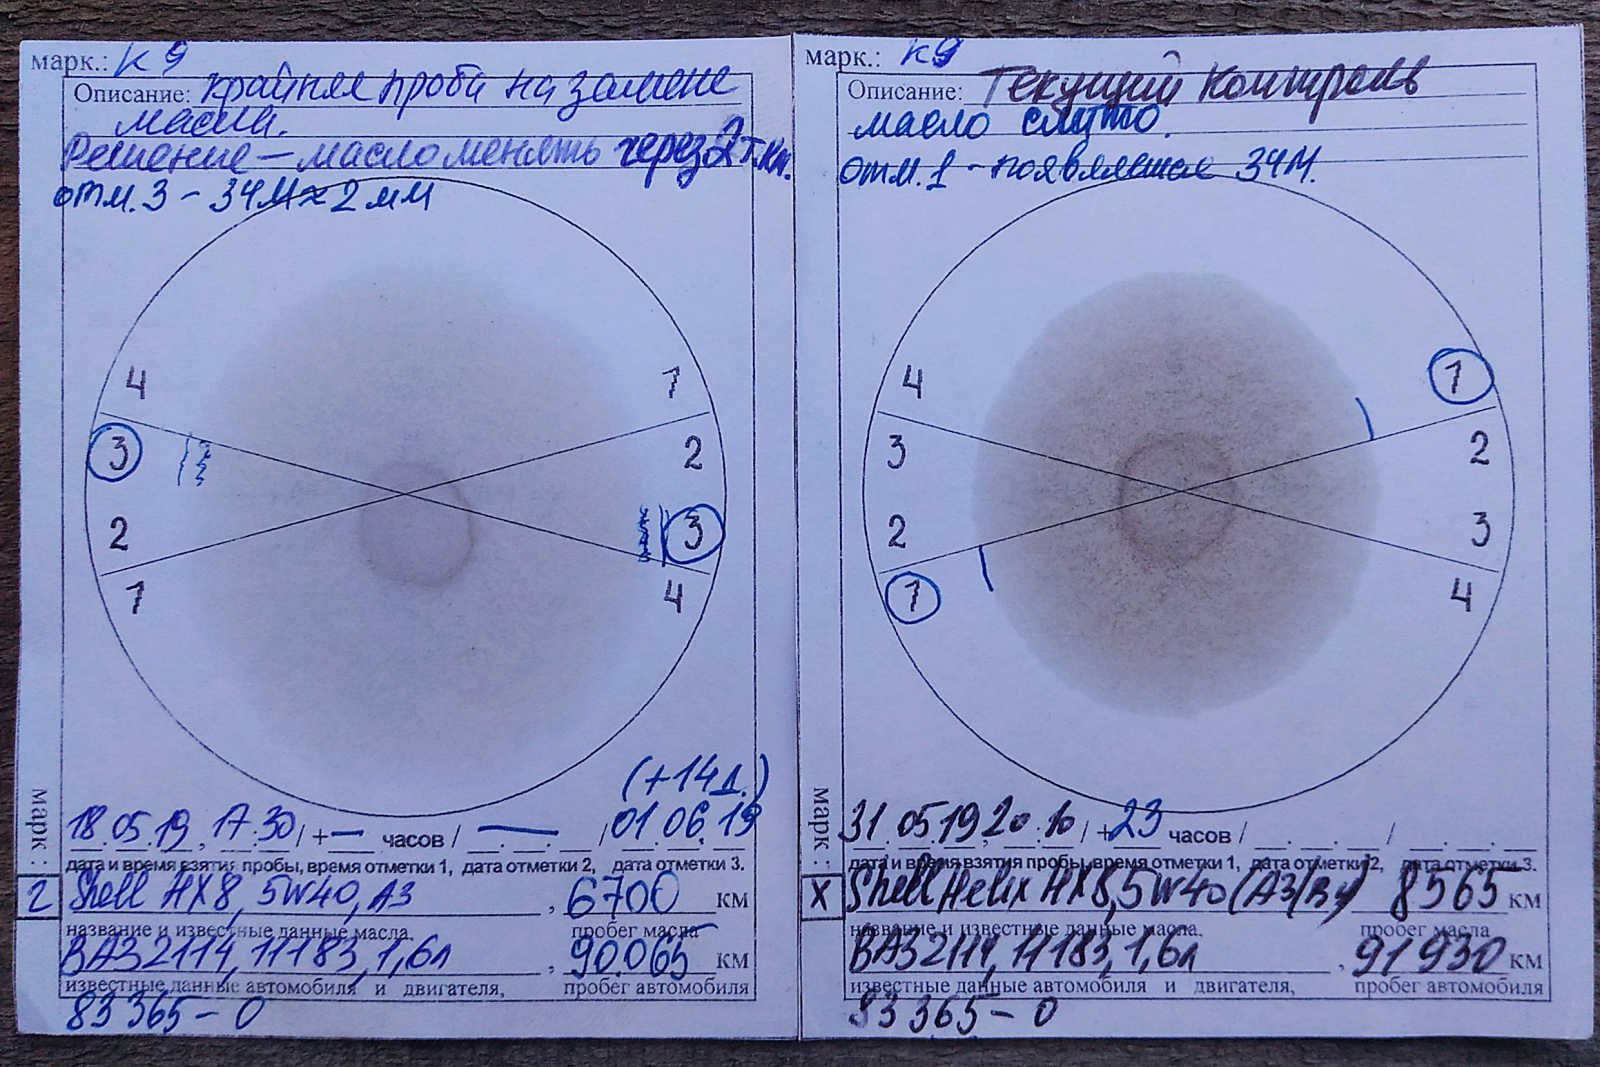 марк.: К9
Описание: крайнее проба на замене
масла.
Решение – масло менять через 2 т.км.
отм.3 – ЗЧМ ≈ 2 мм
4
7
3
2
2
3
1
4
(+14д.)
марк.:
18.05.19, 17:30 / + — часов / — / 01.06.19
дата и время взятия пробы, время отметки 1, дата отметки 2, дата отметки 3.
2 Shell HX8, 5W40, A3, 6700 км
название и известные данные масла, пробег масла
ВАЗ 2114, 11183, 1,6л, 90.065 км
известные данные автомобиля и двигателя, пробег автомобиля
83365 – 0
марк.: К9
Описание: Текущий контроль
масло слито.
отм.1 – появляется ЗЧМ.
4
1
3
2
2
3
1
4
марк.:
31.05.19 20:10 / +23 часов / . . /
дата и время взятия пробы, время отметки 1, дата отметки 2, дата отметки 3.
X Shell Helix HX8, 5W40 (A3/B4) 8565 км
название и известные данные масла, пробег масла
ВАЗ 2114, 11183, 1,6л, 91930 км
известные данные автомобиля и двигателя, пробег автомобиля
83365 – 0